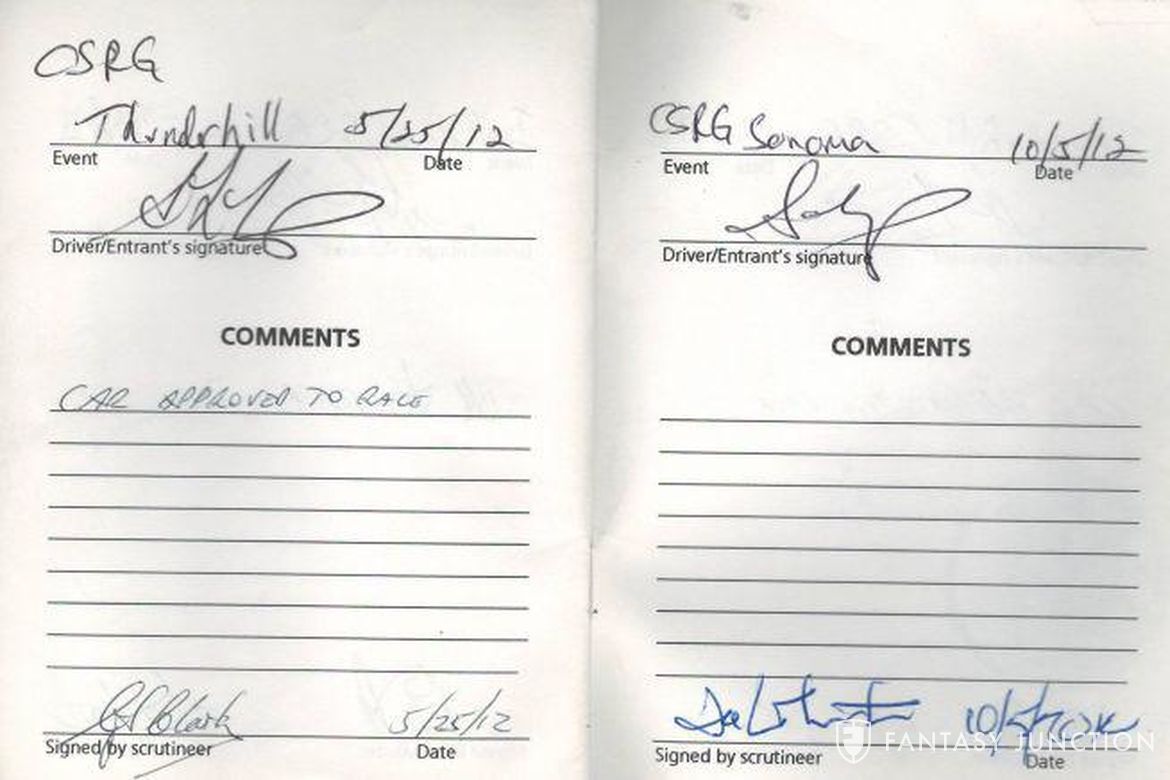 CSRG
Thunderhill 5/25/12
Event Date
Driver/Entrant's signature
COMMENTS
CAR APPROVED TO RACE
Clark 5/25/12
Signed by scrutineer Date
CSRG Sonoma 10/5/12
Event Date
Driver/Entrant's signature
COMMENTS
Signed by scrutineer Date
FANTASY JUNCTION